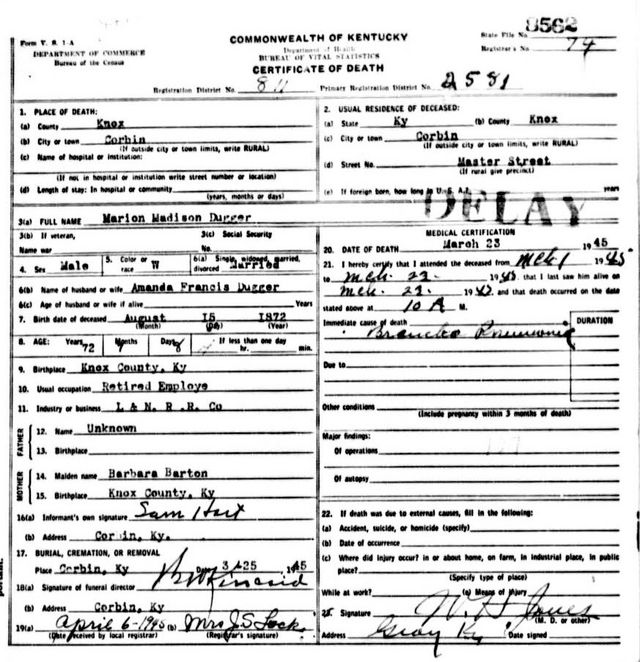 8562
Form V. S. 1-A
COMMONWEALTH OF KENTUCKY
State File No.
DEPARTMENT OF COMMERCE
Department of Health
Registrar's No. 74
Bureau of the Census
BUREAU OF VITAL STATISTICS
CERTIFICATE OF DEATH
Registration District No.
Primary Registration District No. 2581
1. PLACE OF DEATH:
(a) County Knox
(b) City or town Corbin
(If outside city or town limits, write RURAL)
(c) Name of hospital or institution:
(If not in hospital or institution write street number or location)
(d) Length of stay: In hospital or community
(years, months or days)
2. USUAL RESIDENCE OF DECEASED:
(a) State Ky (b) County Knox
(c) City or town Corbin
(If outside city or town limits, write RURAL)
(d) Street No. Master Street
(If rural give precinct)
(e) If foreign born, how long in U. S. A.? years
DELAY
3(a) FULL NAME Marion Madison Dugger
3(b) If veteran, 3(c) Social Security
Name war No.
4. Sex Male 5. Color or race W 6(a) Single, widowed, married, divorced Married
6(b) Name of husband or wife Amanda Francis Dugger
6(c) Age of husband or wife if alive Years
7. Birth date of deceased August 15 1872
(Month) (Day) (Year)
8. AGE: Years 72 Months 7 Days 8 If less than one day
hr. min.
9. Birthplace Knox County, Ky
10. Usual occupation Retired Employe
11. Industry or business L & N. R. R. Co
FATHER
12. Name Unknown
13. Birthplace
MOTHER
14. Maiden name Barbara Barton
15. Birthplace Knox County, Ky
16(a) Informant's own signature Sam Hart
(b) Address Corbin, Ky.
17. BURIAL, CREMATION, OR REMOVAL
Place Corbin, Ky Date 3-25 1945
18(a) Signature of funeral director
(b) Address Corbin, Ky
19(a) April 6-1945 (b) Mrs J.S. Lock
(Date received by local registrar) (Registrar's signature)
MEDICAL CERTIFICATION
20. DATE OF DEATH March 23 1945
21. I hereby certify that I attended the deceased from Mch 1 1945
to Mch. 23 1945, that I last saw him alive on
Mch. 23. 1945 and that death occurred on the date
stated above at 10 A M.
Immediate cause of death DURATION
Broncho Pneumonia
Due to
Other conditions
(Include pregnancy within 3 months of death)
Major findings:
Of operations
Of autopsy
22. If death was due to external causes, fill in the following:
(a) Accident, suicide, or homicide (specify)
(b) Date of occurrence
(c) Where did injury occur? in or about home, on farm, in industrial place, in public
place?
(Specify type of place)
While at work? (e) Means of injury
23. Signature W. H. Jones
(M. D. or other)
Address Gray Ky Date signed